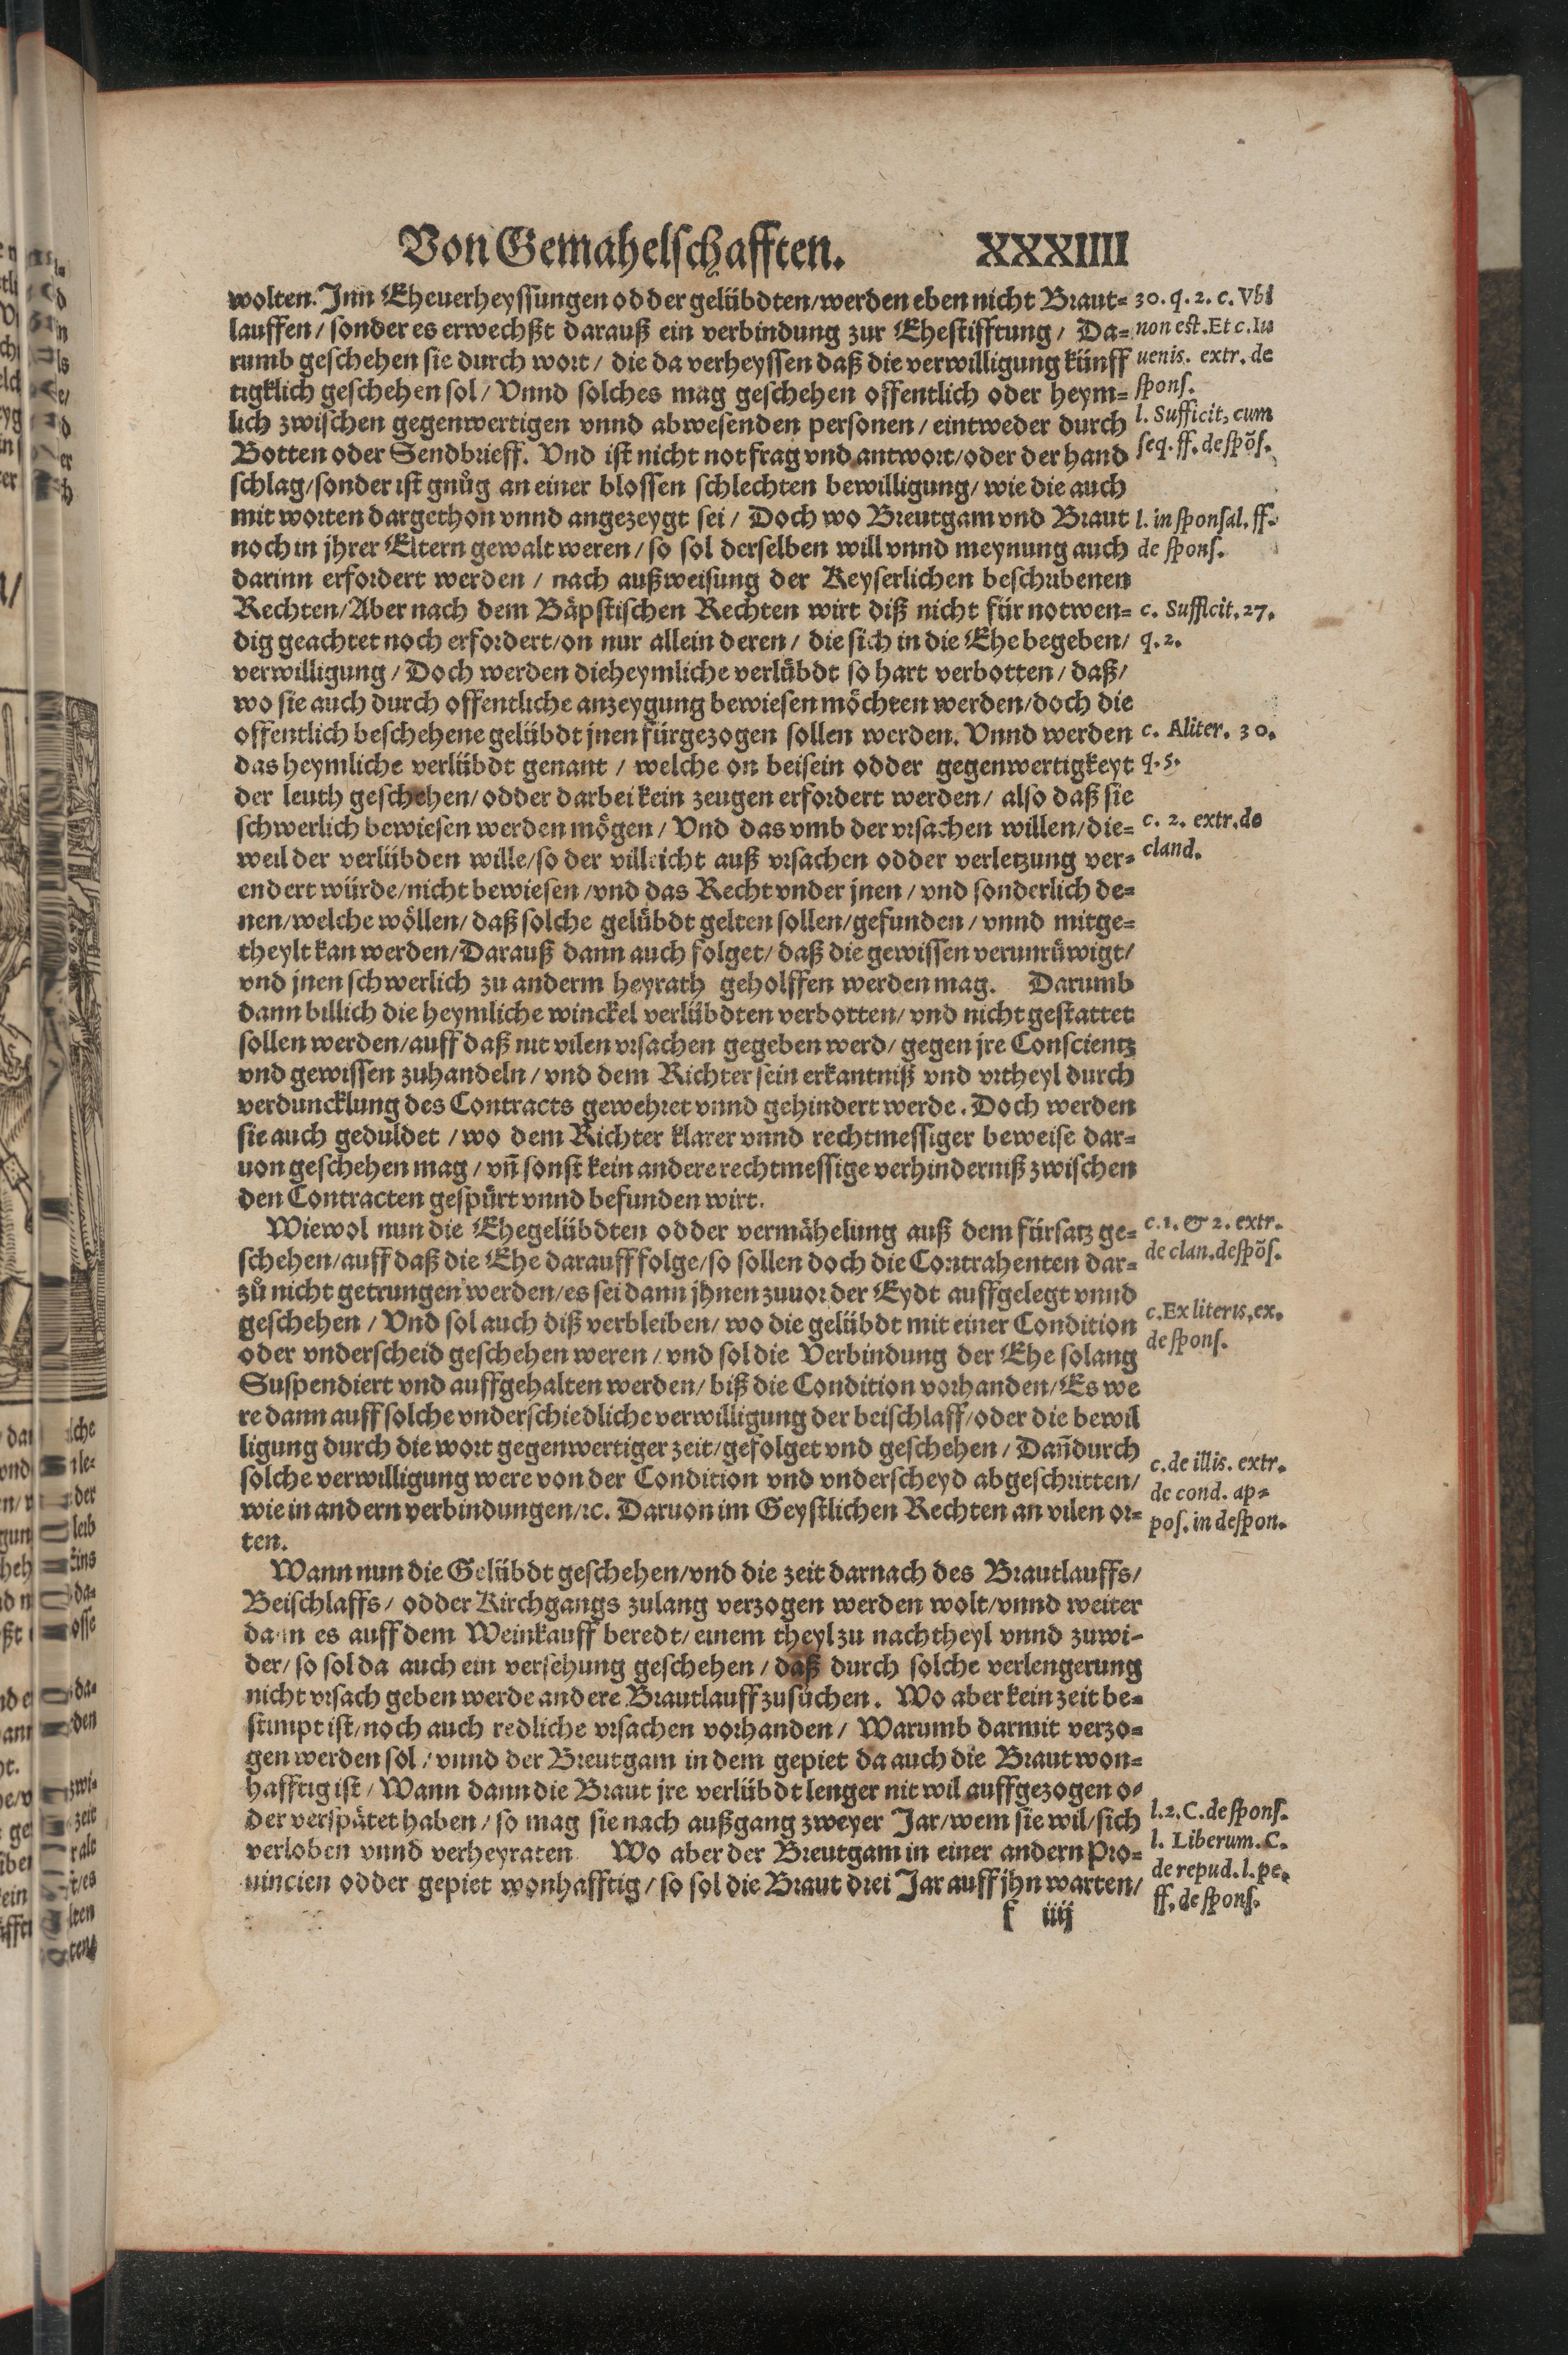 Von Gemahelschafften. XXXIIII
wolten. Inn Eheuerheyssungen odder gelübdten/werden eben nicht Braut-
lauffen/ sonder es erwechßt darauß ein verbindung zur Ehestifftung/ Da-
rumb geschehen sie durch wort/ die da verheyssen daß die verwilligung künff
tigklich geschehen sol/ Vnnd solches mag geschehen offentlich oder heym-
lich zwischen gegenwertigen vnnd abwesenden personen/ eintweder durch
Botten oder Sendbrieff. Vnd ist nicht not frag vnd antwort/oder der hand
schlag/sonder ist gnůg an einer blossen schlechten bewilligung/ wie die auch
mit worten dargethon vnnd angezeygt sei/ Doch wo Breutgam vnd Braut
noch in jhrer Eltern gewalt weren/ so sol derselben will vnnd meynung auch
darinn erfordert werden/ nach außweisung der Keyserlichen beschribenen
Rechten/Aber nach dem Bäpstischen Rechten wirt diß nicht für notwen-
dig geachtet noch erfordert/on nur allein deren/ die sich in die Ehe begeben/
verwilligung/ Doch werden die heymliche verlübdt so hart verbotten/ daß/
wo sie auch durch offentliche anzeygung bewiesen möchten werden/doch die
offentlich beschehene gelübdt jnen fürgezogen sollen werden. Vnnd werden
das heymliche verlübdt genant/ welche on beisein odder gegenwertigkeyt
der leuth geschehen/odder darbei kein zeugen erfordert werden/ also daß sie
schwerlich bewiesen werden mögen/ Vnd das vmb der vrsachen willen/die-
weil der verlübden wille/so der villeicht auß vrsachen odder verletzung ver-
endert würde/nicht bewiesen/vnd das Recht vnder jnen/ vnd sonderlich de-
nen/welche wöllen/daß solche gelübdt gelten sollen/gefunden/ vnnd mitge-
theylt kan werden/Darauß dann auch folget/ daß die gewissen verunrüwigt/
vnd jnen schwerlich zu anderm heyrath geholffen werden mag. Darumb
dann billich die heymliche winckel verlübdten verbotten/ vnd nicht gestattet
sollen werden/auff daß nit vilen vrsachen gegeben werd/ gegen jre Conscientz
vnd gewissen zuhandeln/ vnd dem Richter sein erkantniß vnd vrtheyl durch
verduncklung des Contracts gewehret vnnd gehindert werde. Doch werden
sie auch geduldet/wo dem Richter klarer vnnd rechtmessiger beweise dar-
uon geschehen mag/ vñ sonst kein andere rechtmessige verhinderniß zwischen
den Contracten gespürt vnnd befunden wirt.
Wiewol nun die Ehegelübdten odder vermähelung auß dem fürsatz ge-
schehen/auff daß die Ehe darauff folge/so sollen doch die Contrahenten dar-
zů nicht getrungen werden/es sei dann jhnen zuuor der Eydt auffgelegt vnnd
geschehen/ Vnd sol auch diß verbleiben/ wo die gelübdt mit einer Condition
oder vnderscheid geschehen weren/ vnd sol die Verbindung der Ehe solang
Suspendiert vnd auffgehalten werden/ biß die Condition vorhanden/Es we
re dann auff solche vnderschiedliche verwilligung der beischlaff/oder die bewil
ligung durch die wort gegenwertiger zeit/gefolget vnd geschehen/ Dañ durch
solche verwilligung were von der Condition vnd vnderscheyd abgeschritten/
wie in andern verbindungen/ꝛc. Daruon im Geystlichen Rechten an vilen or-
ten.
Wann nun die Gelübdt geschehen/vnd die zeit darnach des Brautlauffs/
Beischlaffs/ odder Kirchgangs zulang verzogen werden wolt/vnnd weiter
dann es auff dem Weinkauff beredt/einem theyl zu nachtheyl vnnd zuwi-
der/ so sol da auch ein versehung geschehen/ daß durch solche verlengerung
nicht vrsach geben werde andere Brautlauff zusüchen. Wo aber kein zeit be-
stimpt ist/noch auch redliche vrsachen vorhanden/ Warumb darmit verzo-
gen werden sol/ vnnd der Breutgam in dem gepiet da auch die Braut won-
hafftig ist/ Wann dann die Braut jre verlübdt lenger nit wil auffgezogen o-
der verspätet haben/ so mag sie nach außgang zweyer Jar/wem sie wil/sich
verloben vnnd verheyraten Wo aber der Breutgam in einer andern Pro-
uincien odder gepiet wonhafftig/ so sol die Braut drei Jar auff jhn warten/
f iiij
30. q. 2. c. Vbi
non est. Et c. Iu
uenis. extr. de
spons.
l. Sufficit, cum
seq. ff. de spõs.
l. in sponsal. ff.
de spons.
c. Sufficit. 27.
q. 2.
c. Aliter. 30.
q. 5.
c. 2. extr. de
cland.
c. 1. & 2. extr.
de clan. despõs.
c. Ex literis, ex.
de spons.
c. de illis. extr.
de cond. ap-
pos. in despon.
l. 2. C. de spons.
l. Liberum. C.
de repud. l. pe.
ff. de spons.